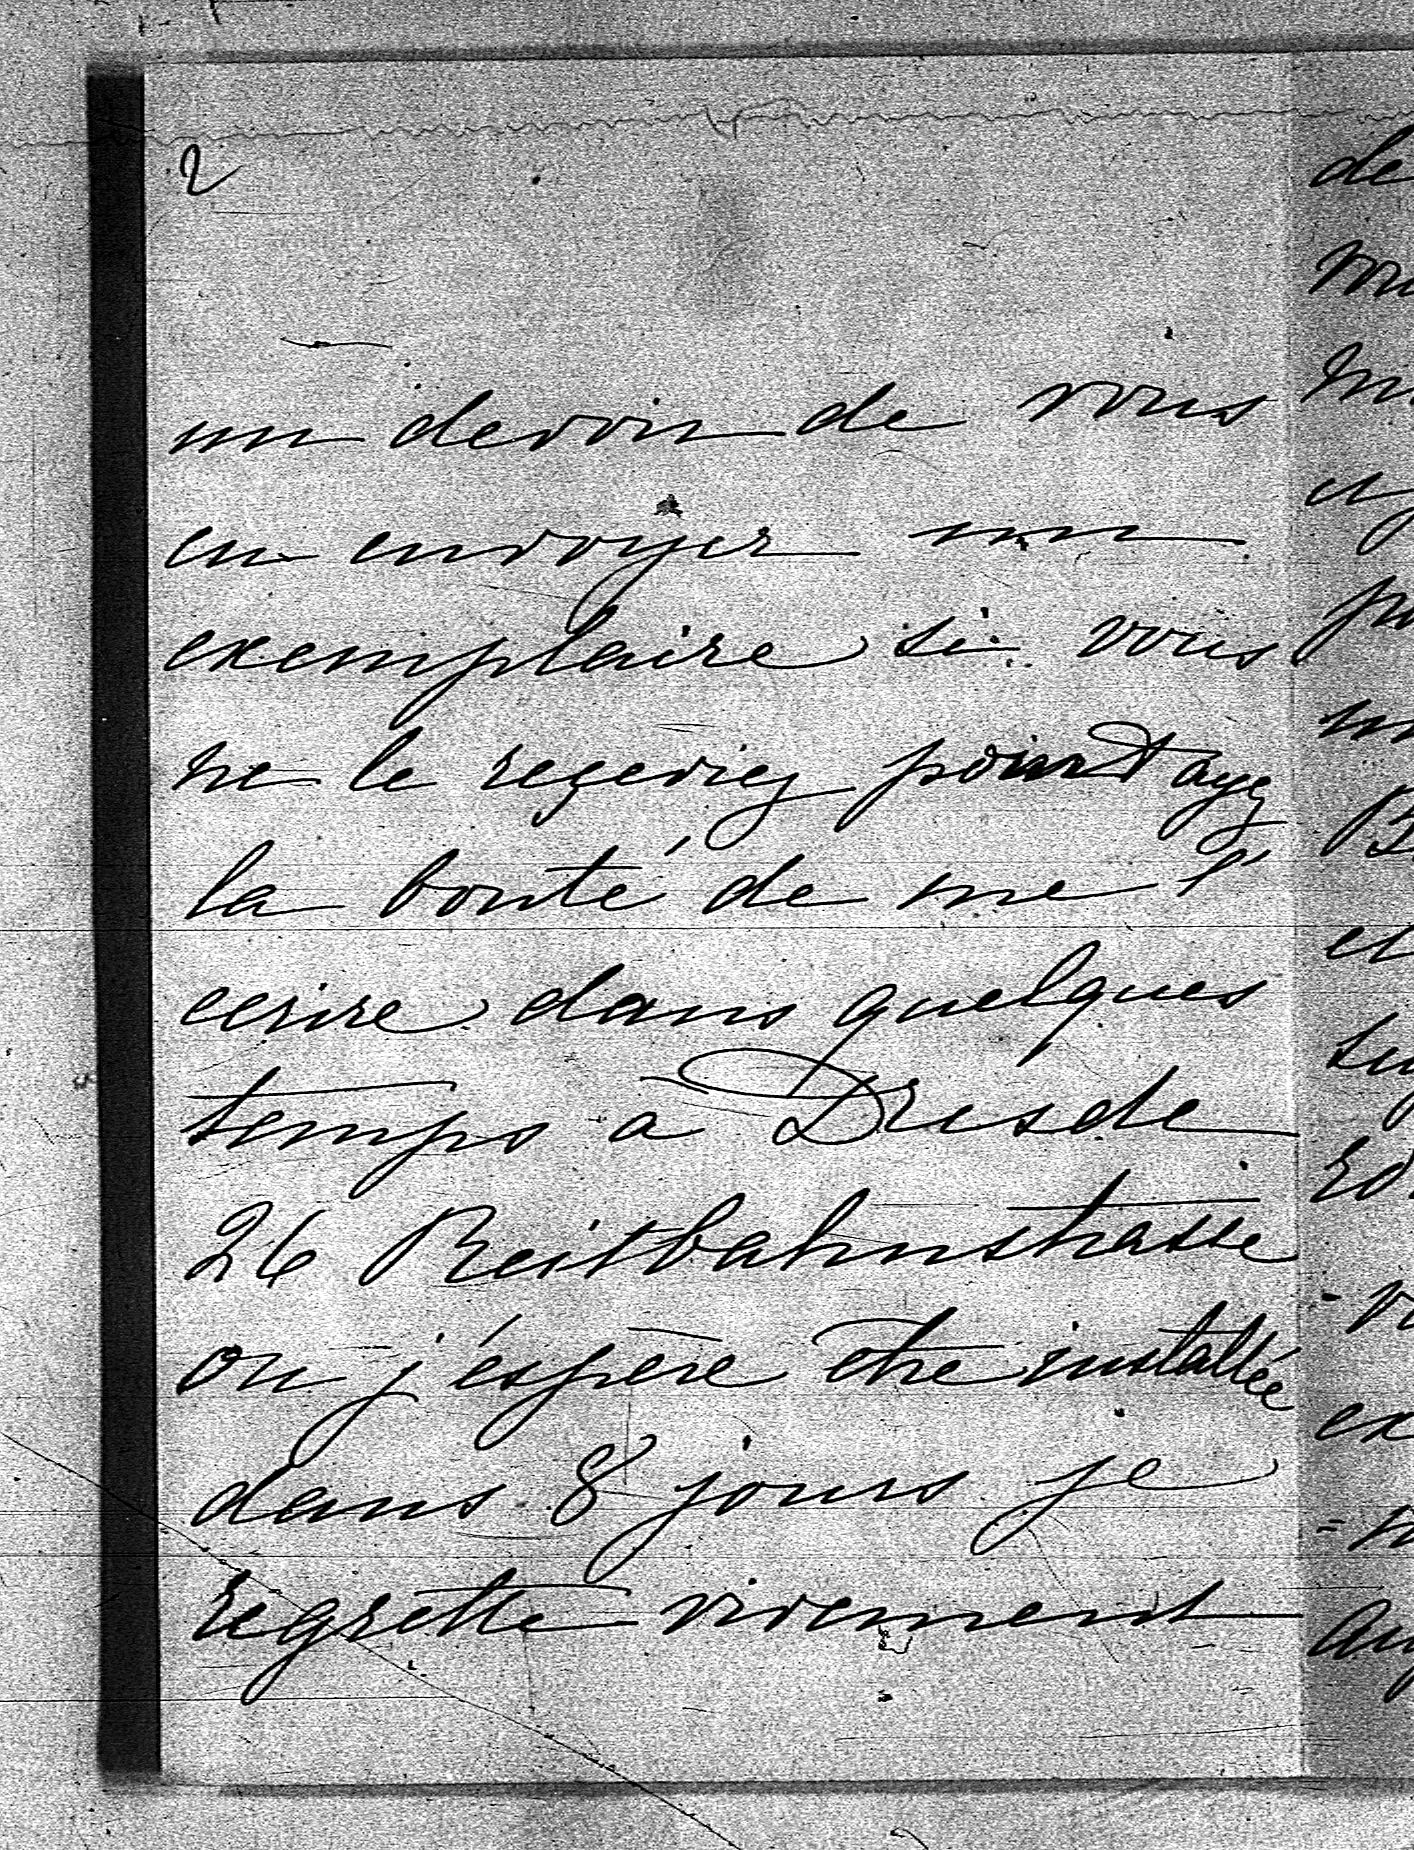 2
un devoir de vous
en envoyer un
exemplaire si vous
ne le reçeviez point ayez
la bonté de me l'
ecrire dans quelques
temps a Dresde
26 Reitbahnstrasse
ou j'éspere etre installée
dans 8 jours je
regrette vivement